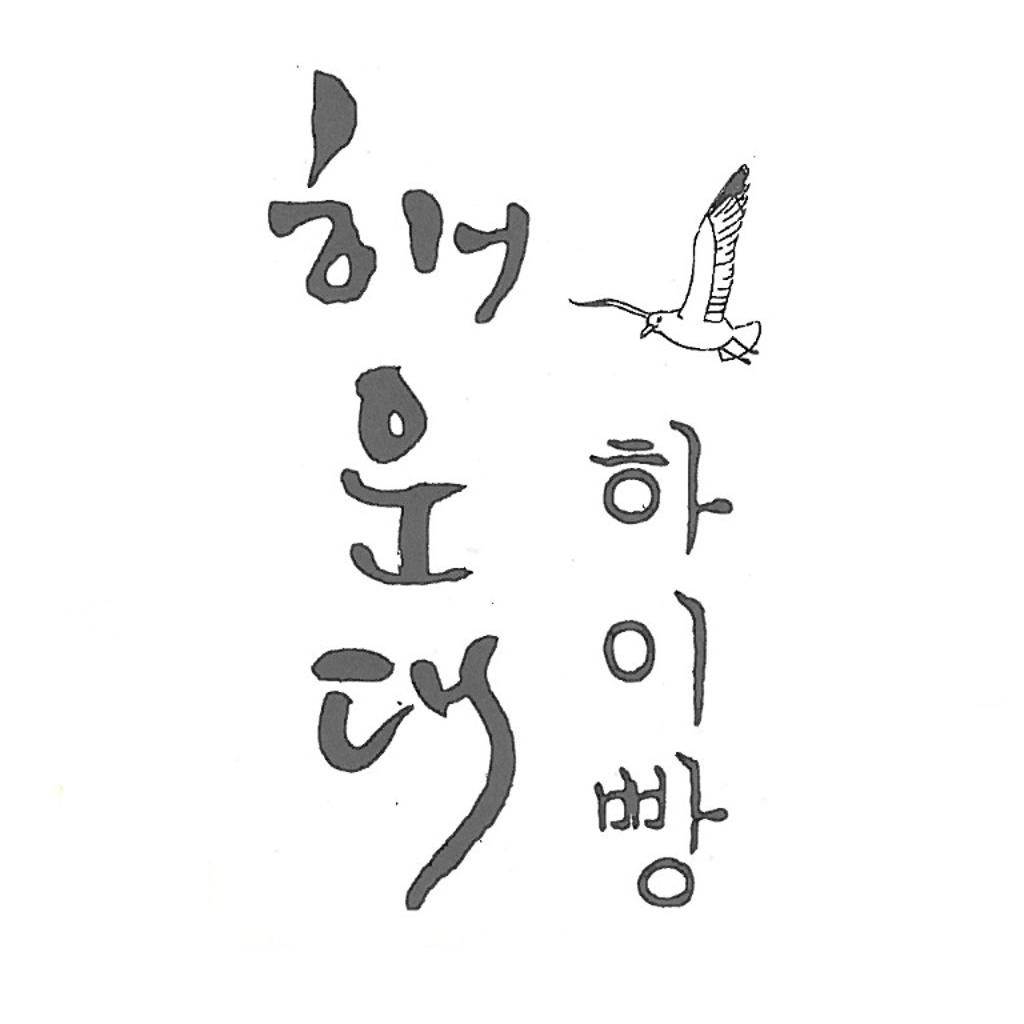 해운대
하이빵